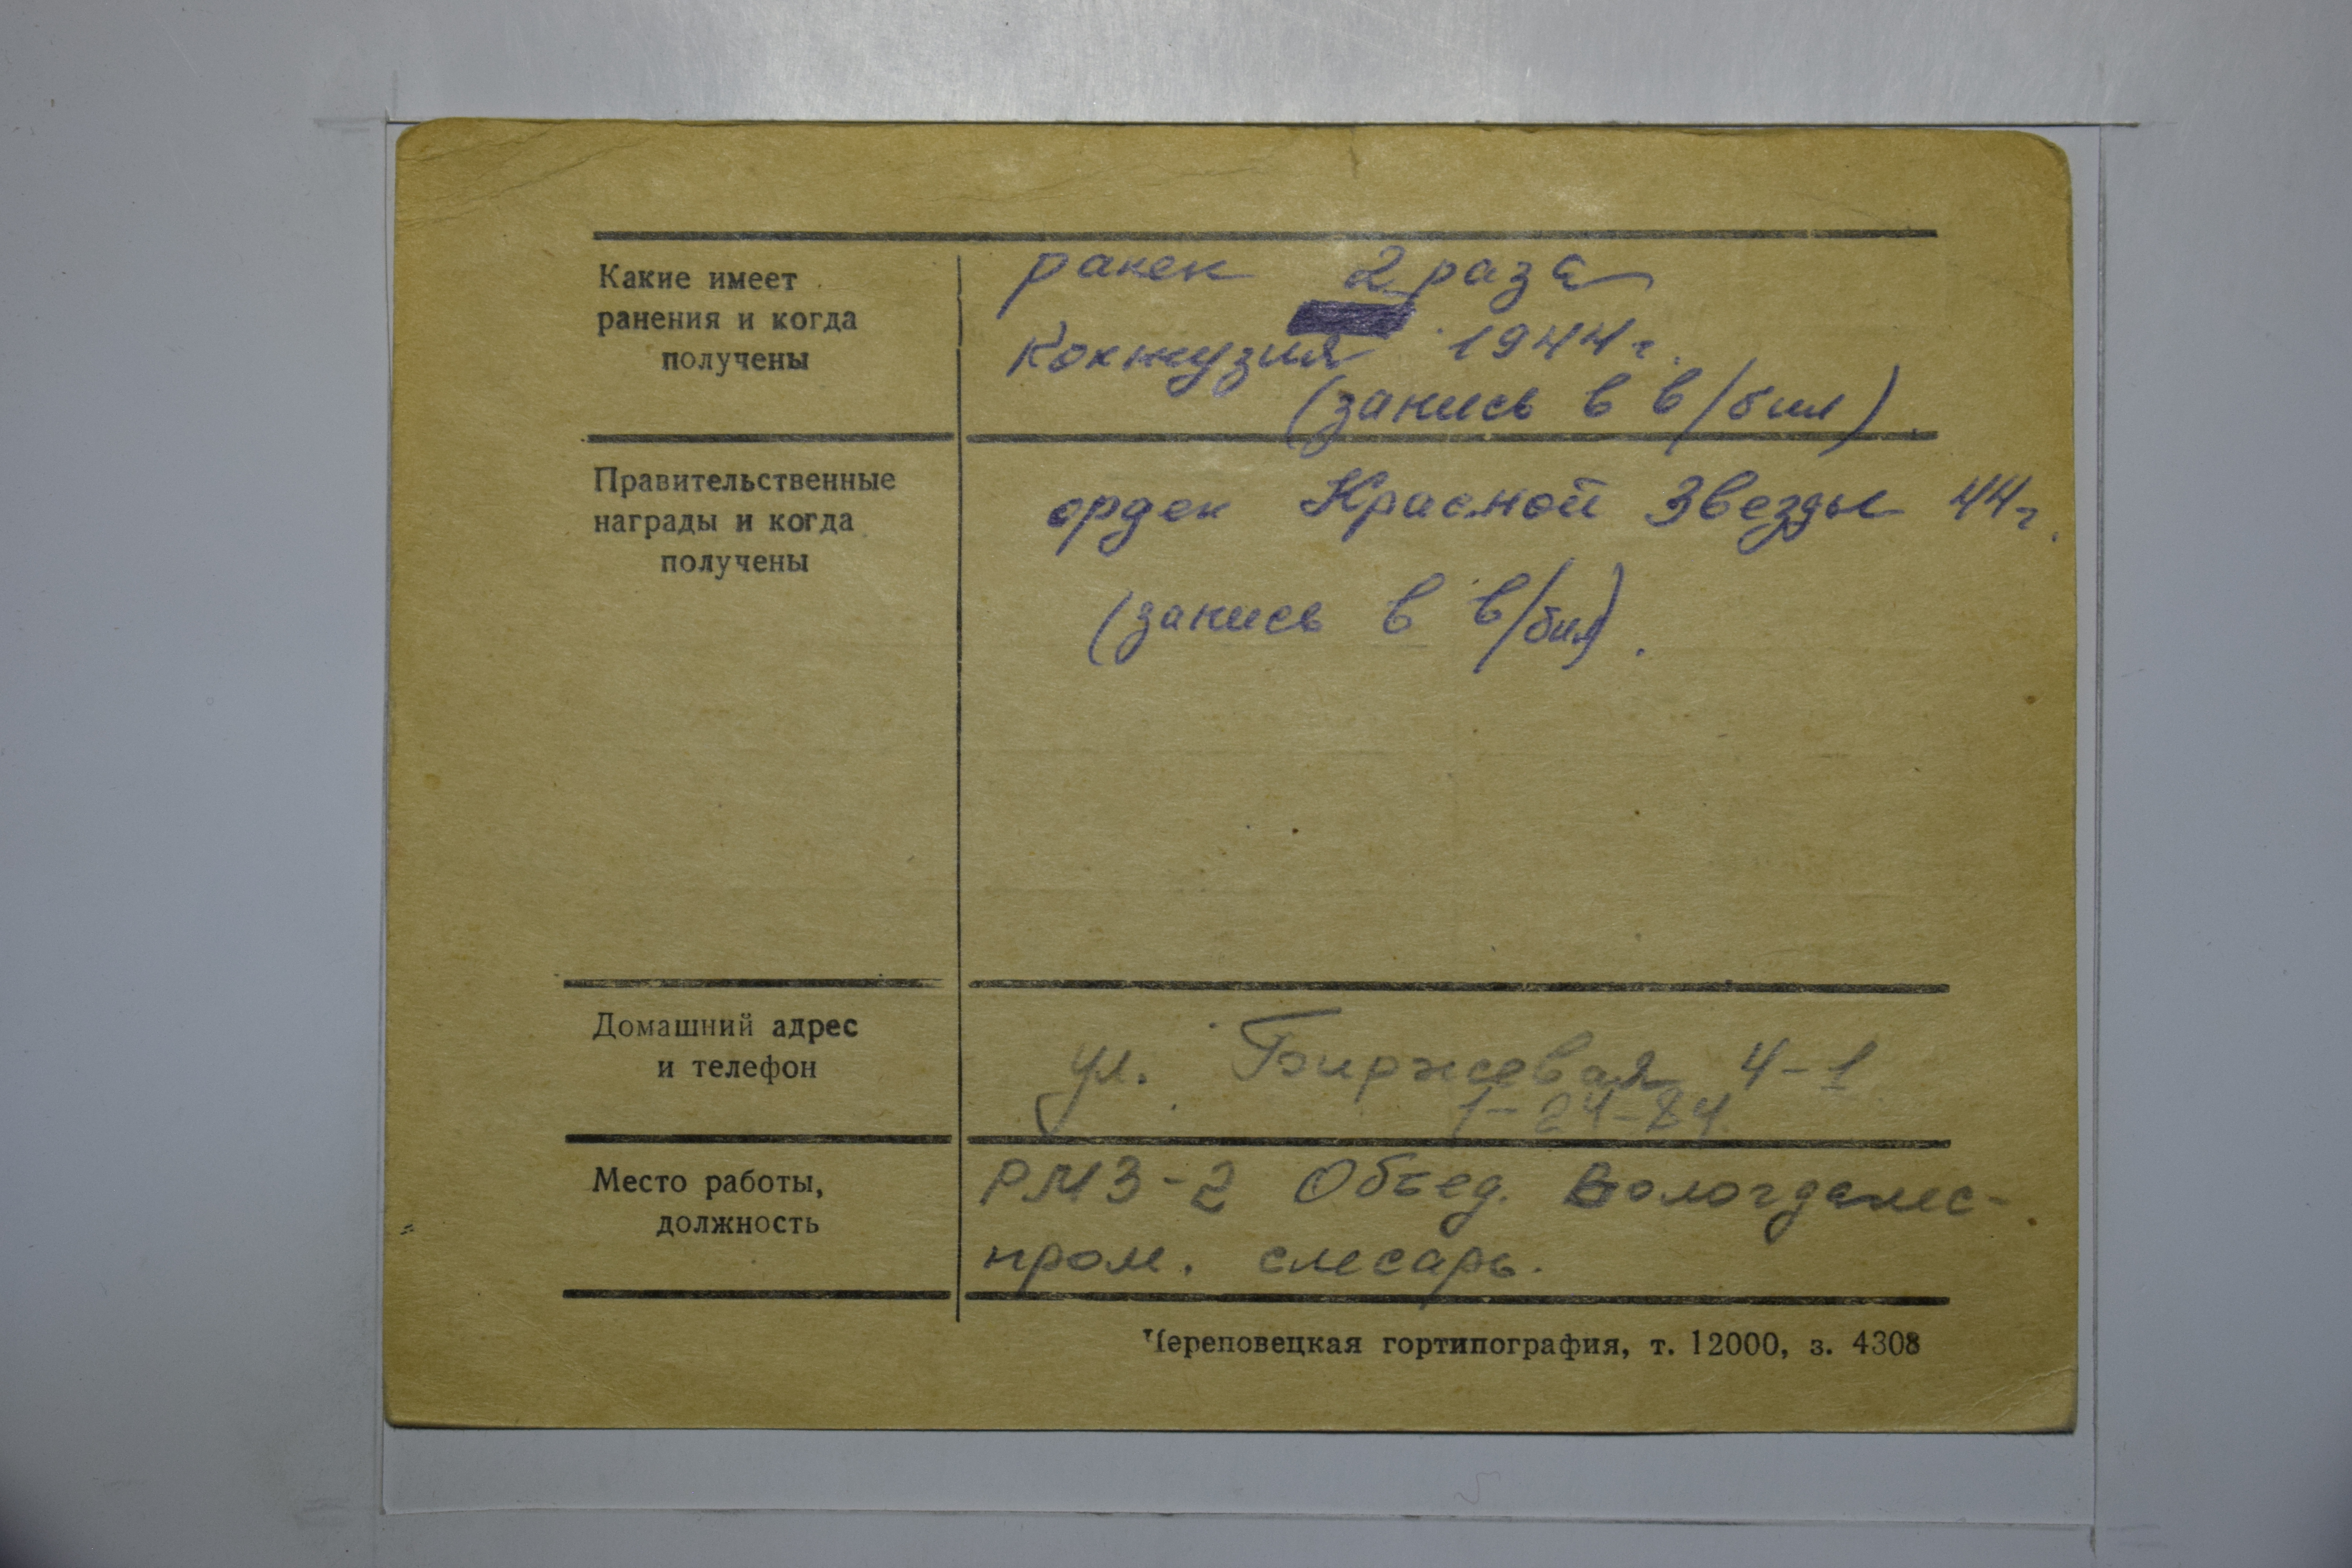 Какие имеет
ранения и когда
получены
ранен 2 раза
контузия 1944 г.
(запись в в/бил)
Правительственные
награды и когда
получены
орден Красной Звезды 44 г.
(запись в в/бил).
Домашний адрес
и телефон
ул. Биржевая 4-1
1-24-84
Место работы,
должность
РМЗ-2 Объед. Вологдалес-
пром. слесарь.
Череповецкая гортипография, т. 12000, з. 4308